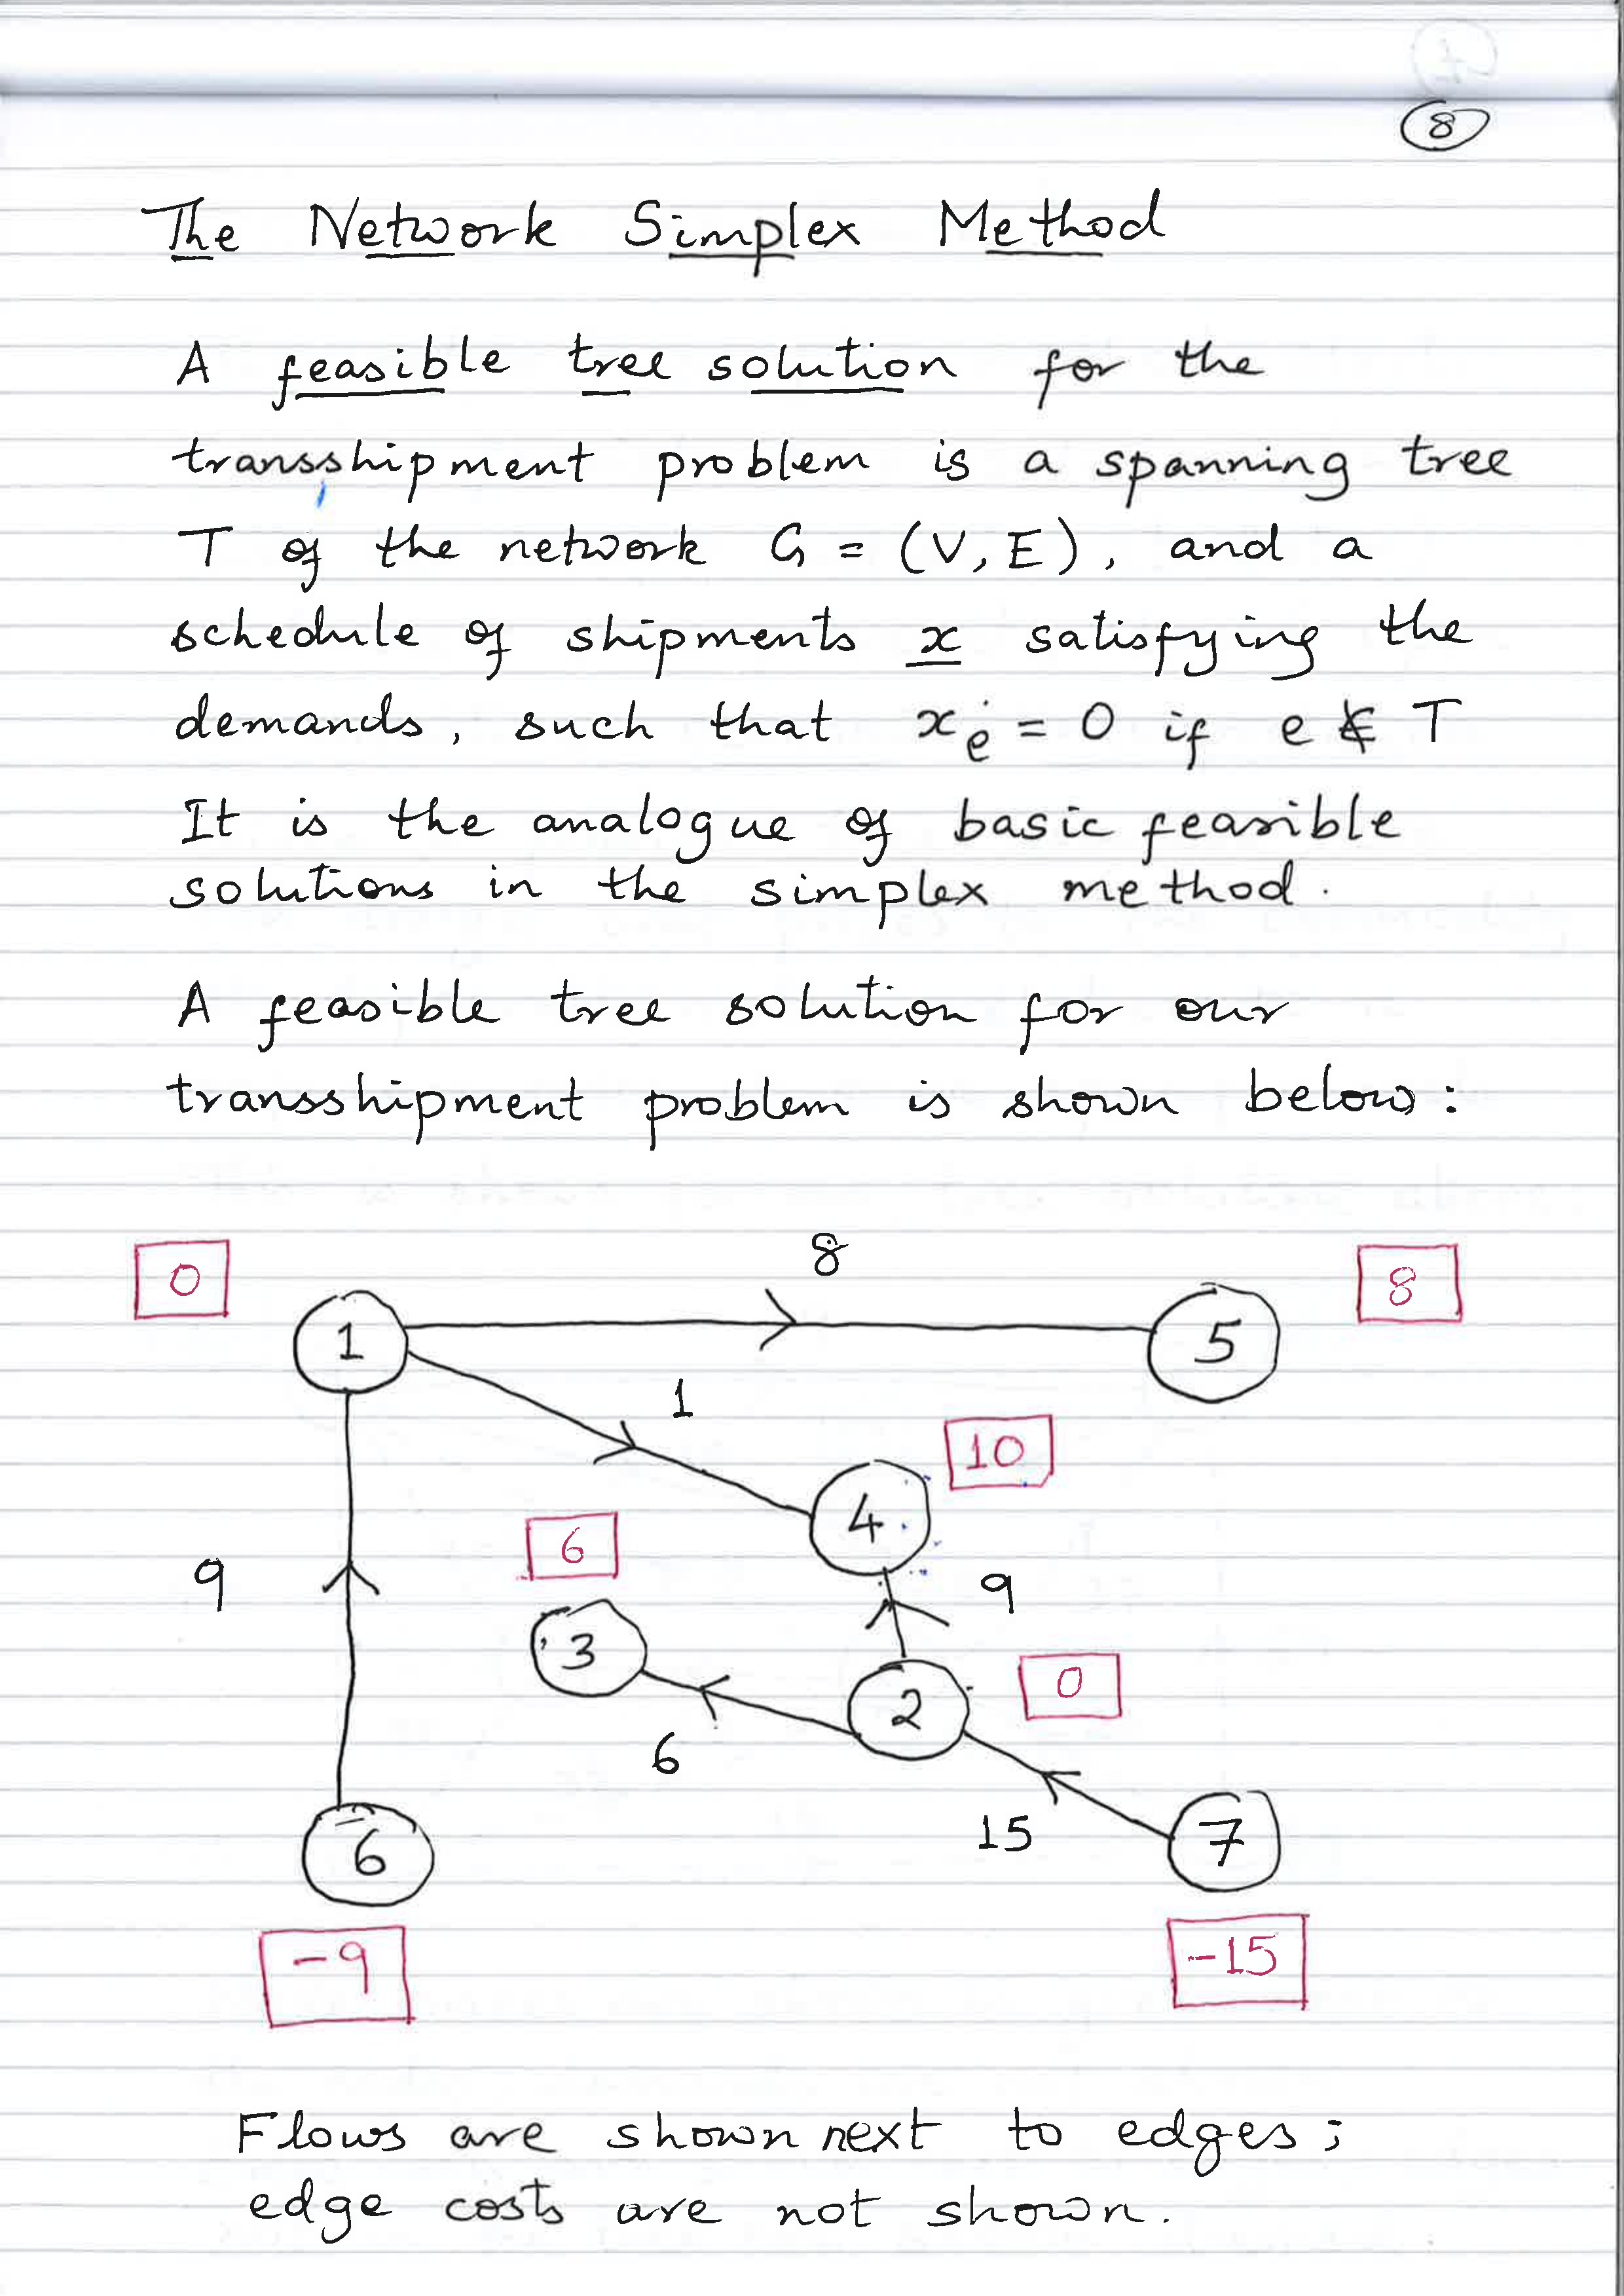 8
The Network Simplex Method
A feasible tree solution for the
transshipment problem is a spanning tree
T of the network G = (V, E), and a
schedule of shipments x satisfying the
demands, such that x_e = 0 if e ∉ T
It is the analogue of basic feasible
solutions in the simplex method.
A feasible tree solution for our
transshipment problem is shown below:
0
8
8
1
5
1
10
4
6
9
9
3
0
2
6
15
7
6
-9
-15
Flows are shown next to edges;
edge costs are not shown.